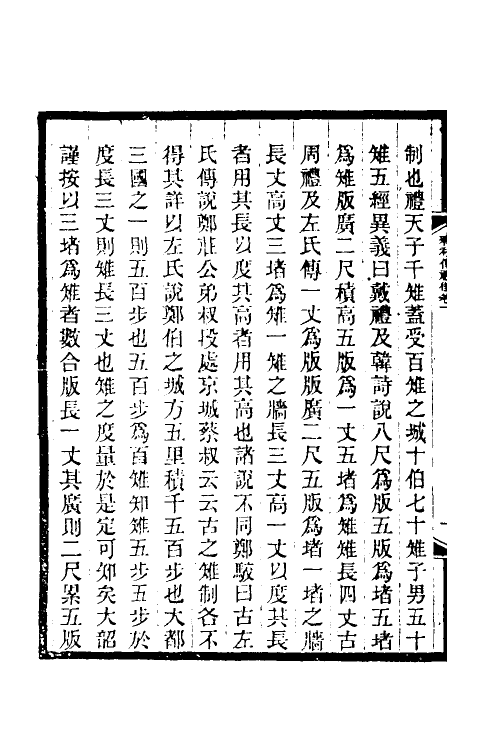 制也禮天子千雉蓋受百雉之城十伯七十雉子男五十
雉五經異義曰戴禮及韓詩說八尺為版五版為堵五堵
為雉版廣二尺積高五版為一丈五堵為雉雉長四丈古
周禮及左氏傳一丈為版版廣二尺五版為堵一堵之牆
長丈高丈三堵為雉一雉之牆長三丈高一丈以度其長
者用其長以度其高者用其高也諸說不同鄭駮曰古左
氏傳說鄭莊公弟叔投處京城蔡叔云云古之雉制各不
得其詳以左氏說鄭伯之城方五里積千五百步也大都
三國之一則五百步也五百步為百雉知雉五步五步於
度長三丈則雉長三丈也雉之度量於是定可知矣大韶
謹按以三堵為雉者數合版長一丈其廣則二尺累五版